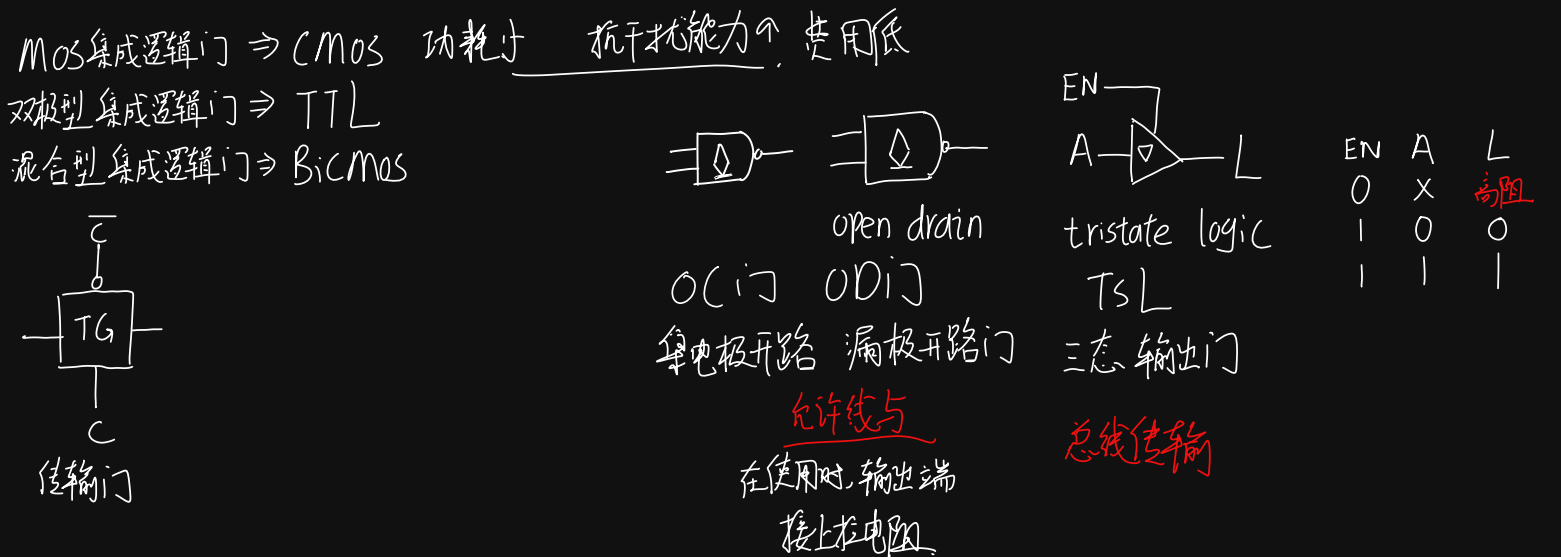 MOS集成逻辑门 ⇒ CMOS 功耗小 抗干扰能力↑ 费用低
双极型集成逻辑门 ⇒ TTL
混合型集成逻辑门 ⇒ BiCMOS
C̅
TG
C
传输门
open drain
OC门 OD门
集电极开路 漏极开路门
允许线与
在使用时,输出端
接上拉电阻
EN
A L
tristate logic
TSL
三态输出门
总线传输
EN A L
0 X 高阻
1 0 0
1 1 1